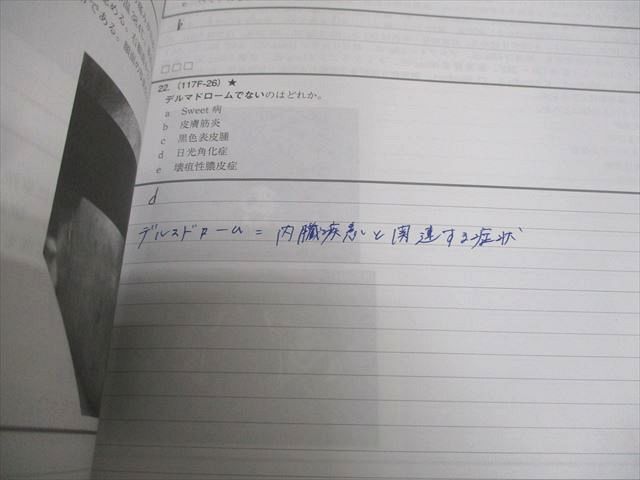 □□□
22. (117F-26) ★
デルマドロームでないのはどれか。
a Sweet 病
b 皮膚筋炎
c 黒色表皮腫
d 日光角化症
e 壊疽性膿皮症
d
デルマドローム = 内臓疾患と関連する症状